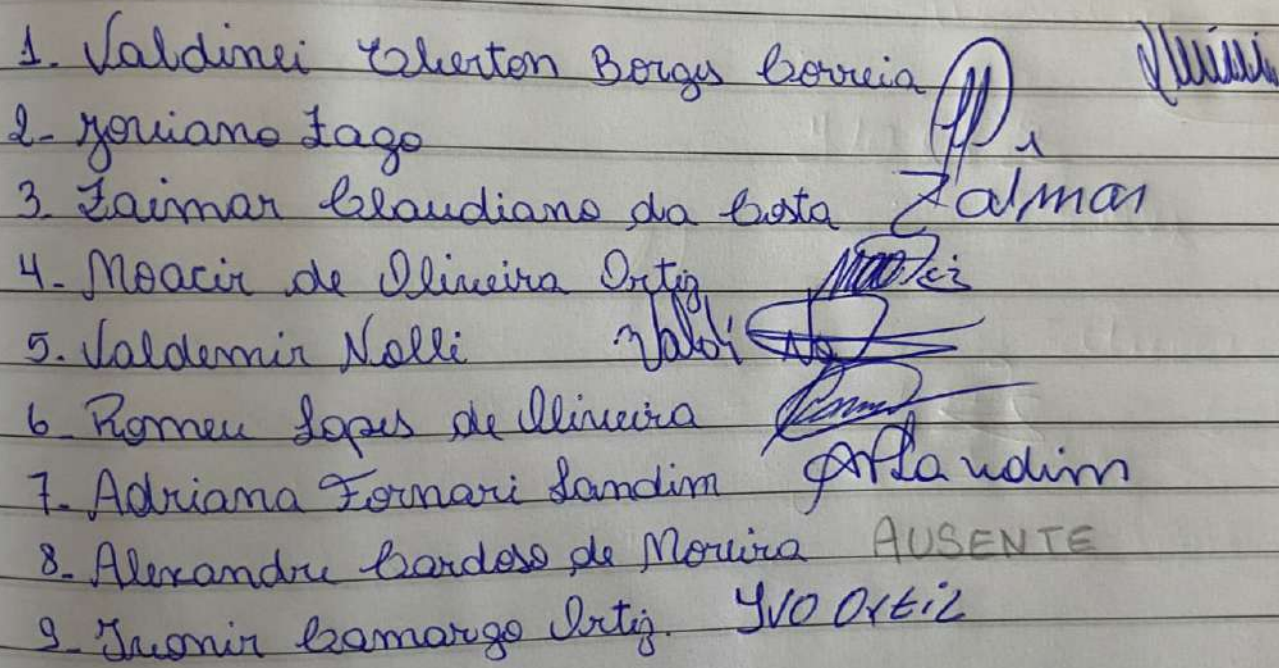 1. Valdinei Cleerton Borges Correia
2- Joviano Zago
3. Zaimar Claudiano da Costa Zalmar
4- Moacir de Oliveira Ortiz Moacir
5. Valdemir Nolli
6- Romeu Lopes de Oliveira
7- Adriana Fornari Landim AFLandim
8- Alexandre Cardoso de Moreira AUSENTE
9- Ivonir Camargo Ortiz. IVO Ortiz